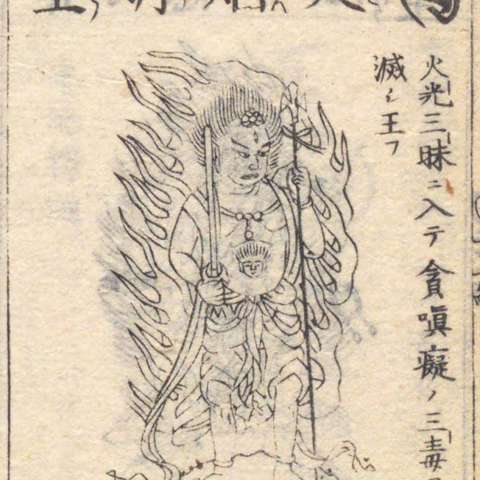 火光三昧ニ入テ貪嗔癡ノ三毒
滅シ王フ